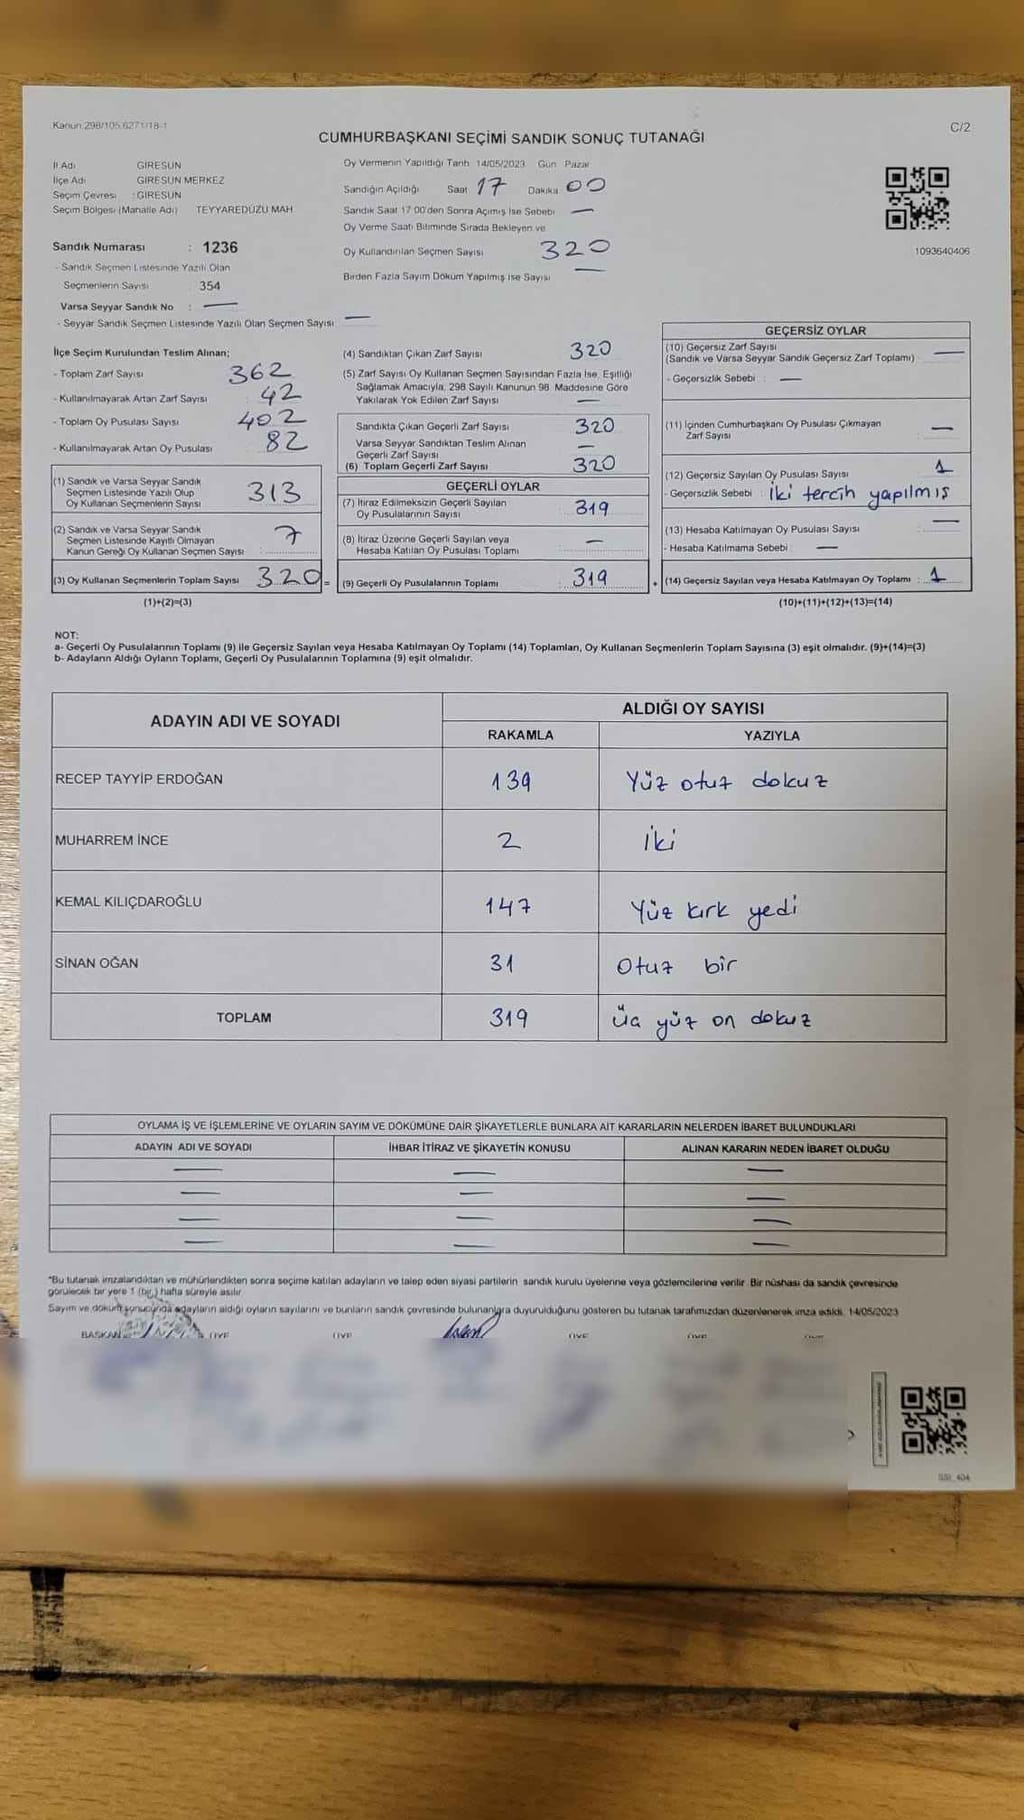 Kanun 298/105,6271/18-1
C/2
CUMHURBAŞKANI SEÇİMİ SANDIK SONUÇ TUTANAĞI
İl Adı GİRESUN
İlçe Adı GİRESUN MERKEZ
Seçim Çevresi : GİRESUN
Seçim Bölgesi (Mahalle Adı) TEYYAREDÜZÜ MAH.
Sandık Numarası : 1236
- Sandık Seçmen Listesinde Yazılı Olan
Seçmenlerin Sayısı 354
Varsa Seyyar Sandık No : —
- Seyyar Sandık Seçmen Listesinde Yazılı Olan Seçmen Sayısı —
Oy Vermenin Yapıldığı Tarih 14/05/2023 Gün Pazar
Sandığın Açıldığı Saat 17 Dakika 00
Sandık Saat 17:00'den Sonra Açılmış İse Sebebi —
Oy Verme Saati Bitiminde Sırada Bekleyen ve
Oy Kullandırılan Seçmen Sayısı 320
Birden Fazla Sayım Döküm Yapılmış ise Sayısı —
1093640406
İlçe Seçim Kurulundan Teslim Alınan;
- Toplam Zarf Sayısı 362
- Kullanılmayarak Artan Zarf Sayısı 42
- Toplam Oy Pusulası Sayısı 402
- Kullanılmayarak Artan Oy Pusulası 82
(1) Sandık ve Varsa Seyyar Sandık
Seçmen Listesinde Yazılı Olup
Oy Kullanan Seçmenlerin Sayısı 313
(2) Sandık ve Varsa Seyyar Sandık
Seçmen Listesinde Kayıtlı Olmayan
Kanun Gereği Oy Kullanan Seçmen Sayısı 7
(3) Oy Kullanan Seçmenlerin Toplam Sayısı 320 =
(1)+(2)=(3)
(4) Sandıktan Çıkan Zarf Sayısı 320
(5) Zarf Sayısı Oy Kullanan Seçmen Sayısından Fazla İse, Eşitliği
Sağlamak Amacıyla, 298 Sayılı Kanunun 98. Maddesine Göre
Yakılarak Yok Edilen Zarf Sayısı —
Sandıkta Çıkan Geçerli Zarf Sayısı 320
Varsa Seyyar Sandıktan Teslim Alınan
Geçerli Zarf Sayısı —
(6) Toplam Geçerli Zarf Sayısı 320
GEÇERLİ OYLAR
(7) İtiraz Edilmeksizin Geçerli Sayılan
Oy Pusulalarının Sayısı 319
(8) İtiraz Üzerine Geçerli Sayılan veya
Hesaba Katılan Oy Pusulası Toplamı —
(9) Geçerli Oy Pusulalarının Toplamı 319 +
GEÇERSİZ OYLAR
(10) Geçersiz Zarf Sayısı
(Sandık ve Varsa Seyyar Sandık Geçersiz Zarf Toplamı) —
- Geçersizlik Sebebi : —
(11) İçinden Cumhurbaşkanı Oy Pusulası Çıkmayan
Zarf Sayısı —
(12) Geçersiz Sayılan Oy Pusulası Sayısı 1
- Geçersizlik Sebebi : İki tercih yapılmış
(13) Hesaba Katılmayan Oy Pusulası Sayısı —
- Hesaba Katılmama Sebebi : —
(14) Geçersiz Sayılan veya Hesaba Katılmayan Oy Toplamı : 1
(10)+(11)+(12)+(13)=(14)
NOT:
a- Geçerli Oy Pusulalarının Toplamı (9) ile Geçersiz Sayılan veya Hesaba Katılmayan Oy Toplamı (14) Toplamları, Oy Kullanan Seçmenlerin Toplam Sayısına (3) eşit olmalıdır. (9)+(14)=(3)
b- Adayların Aldığı Oyların Toplamı, Geçerli Oy Pusulalarının Toplamına (9) eşit olmalıdır.
ADAYIN ADI VE SOYADI
ALDIĞI OY SAYISI
RAKAMLA YAZIYLA
RECEP TAYYİP ERDOĞAN 139 Yüz otuz dokuz
MUHARREM İNCE 2 İki
KEMAL KILIÇDAROĞLU 147 Yüz kırk yedi
SİNAN OĞAN 31 Otuz bir
TOPLAM 319 Üç yüz on dokuz
OYLAMA İŞ VE İŞLEMLERİNE VE OYLARIN SAYIM VE DÖKÜMÜNE DAİR ŞİKAYETLERLE BUNLARA AİT KARARLARIN NELERDEN İBARET BULUNDUKLARI
ADAYIN ADI VE SOYADI İHBAR İTİRAZ VE ŞİKAYETİN KONUSU ALINAN KARARIN NEDEN İBARET OLDUĞU
— — —
— — —
— — —
— — —
*Bu tutanak imzalandıktan ve mühürlendikten sonra seçime katılan adayların ve talep eden siyasi partilerin sandık kurulu üyelerine veya gözlemcilerine verilir. Bir nüshası da sandık çevresinde
görülecek bir yere 1 (bir) hafta süreyle asılır.
Sayım ve döküm sonucunda adayların aldığı oyların sayılarını ve bunların sandık çevresinde bulunanlara duyurulduğunu gösteren bu tutanak tarafımızdan düzenlenerek imza edildi. 14/05/2023
BAŞKAN ÜYE ÜYE ÜYE ÜYE ÜYE